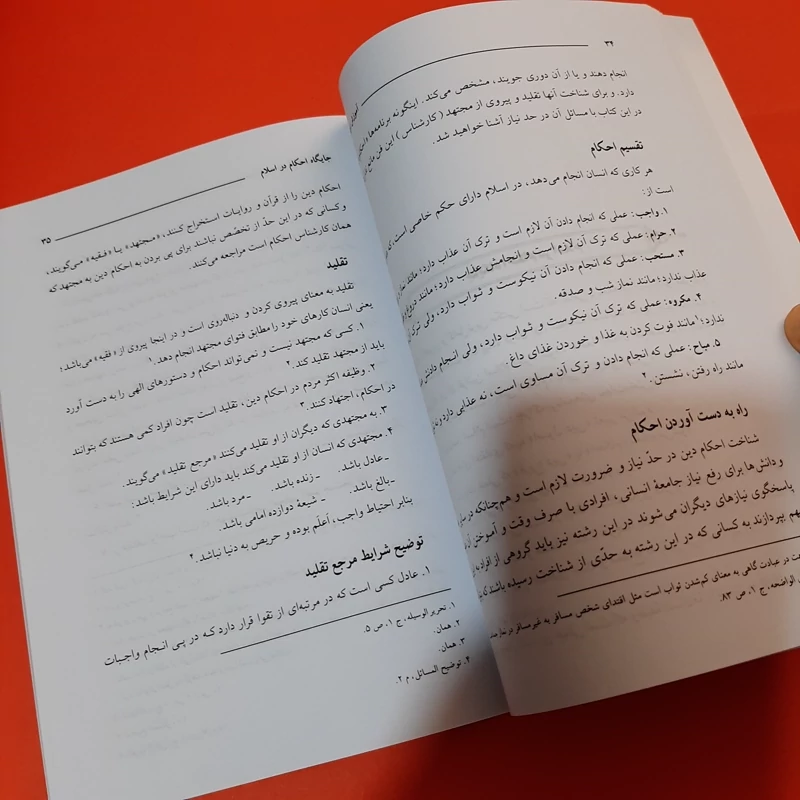 ۳۴
انجام دهند و یا از آن دوری جویند، مشخص می‌کند. اینگونه برنامه‌ها
دارد. و برای شناخت آنها تقلید و پیروی از مجتهد (کارشناس) این فن
در این کتاب با مسائل آن در حد نیاز آشنا خواهید شد.
تقسیم احکام
هر کاری که انسان انجام می‌دهد، در اسلام دارای حکم خاصی است،
است از:
۱. واجب: عملی که انجام دادن آن لازم است و ترک آن عذاب دارد؛ مانند
۲. حرام: عملی که ترک آن لازم است و انجامش عذاب دارد؛ مانند
۳. مستحب: عملی که انجام دادن آن نیکوست و ثواب دارد، ولی ترک
عذاب ندارد؛ مانند نماز شب و صدقه.
۴. مکروه: عملی که ترک آن نیکوست و ثواب دارد، ولی انجام دادن
ندارد؛۱ مانند فوت کردن به غذا و خوردن غذای داغ.
۵. مباح: عملی که انجام دادن و ترک آن مساوی است، نه عذابی دارد
مانند راه رفتن، نشستن.۲
راه به دست آوردن احکام
شناخت احکام دین در حدّ نیاز و ضرورت لازم است و هم‌چنانکه در
و دانش‌ها برای رفع نیاز جامعهٔ انسانی، افرادی با صرف وقت و آموختن
پاسخگوی نیازهای دیگران می‌شوند در این رشته نیز باید گروهی از افراد
بپردازند به کسانی که در این رشته به حدّی از شناخت رسیده باشند که
در عبادت گاهی به معنای کم‌شدن ثواب است مثل اقتدای شخص مسافر به غیرمسافر در نماز
الواضحه، ج ۱، ص ۸۳.
جایگاه احکام در اسلام
۳۵
احکام دین را از قرآن و روایات استخراج کنند، «مجتهد» یا «فقیه» می‌گویند،
و کسانی که در این حدّ از تخصّص نباشند برای پی بردن به احکام دین به مجتهد که
همان کارشناس احکام است مراجعه می‌کنند.
تقلید
تقلید به معنای پیروی کردن و دنباله‌روی است و در اینجا پیروی از «فقیه» می‌باشد؛
یعنی انسان کارهای خود را مطابق فتوای مجتهد انجام دهد.۱
۱. کسی که مجتهد نیست و نمی‌تواند احکام و دستورهای الهی را به دست آورد
باید از مجتهد تقلید کند.۲
۲. وظیفه اکثر مردم در احکام دین، تقلید است چون افراد کمی هستند که بتوانند
در احکام، اجتهاد کنند.۳
۳. به مجتهدی که دیگران از او تقلید می‌کنند «مرجع تقلید» می‌گویند.
۴. مجتهدی که انسان از او تقلید می‌کند باید دارای این شرایط باشد:
ـ عادل باشد. ـ زنده باشد. ـ مرد باشد.
ـ بالغ باشد. ـ شیعهٔ دوازده امامی باشد.
بنابر احتیاط واجب، اَعلَم بوده و حریص به دنیا نباشد.۴
توضیح شرایط مرجع تقلید
۱. عادل کسی است که در مرتبه‌ای از تقوا قرار دارد که در پی انجام واجبات
۱. تحریر الوسیله، ج ۱، ص ۵.
۲. همان.
۳. همان.
۴. توضیح المسائل، م ۲.